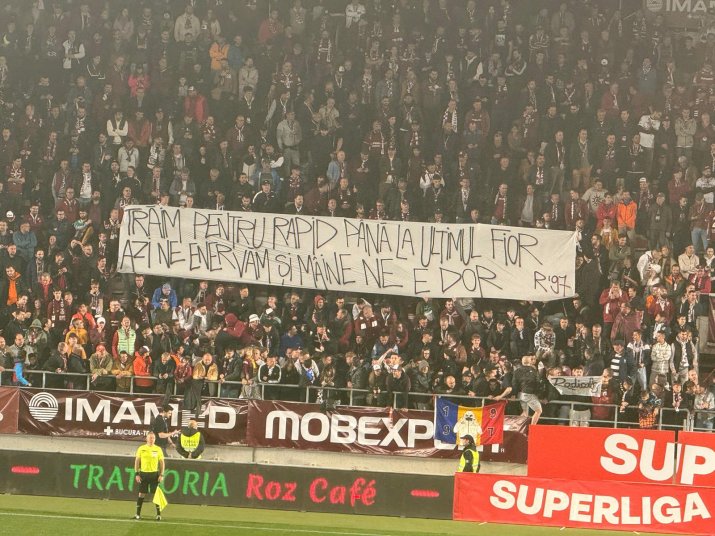 IMA
TRĂIM PENTRU RAPID PÂNĂ LA ULTIMUL FIOR
AZI NE ENERVAM ȘI MÂINE NE E DOR R'97
IMAMED
+ BUCURA-TE
MOBEXP
19 9
SUP
SUP
TRATTORIA Roz Café
SUPERLIGA